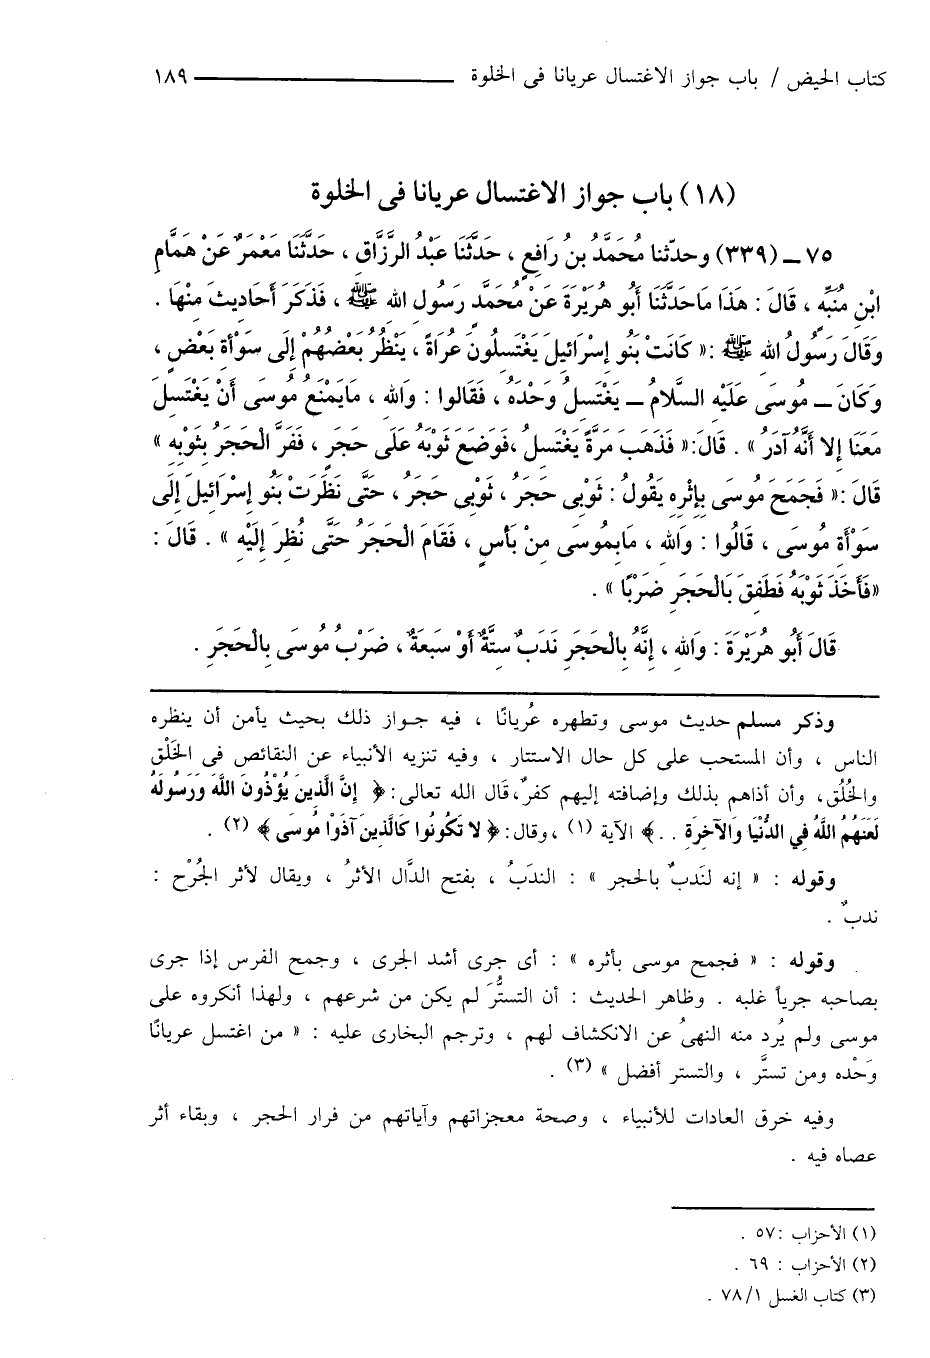 كتاب الحيض / باب جواز الاغتسال عريانا فى الخلوة ــــــــــــ ١٨٩
(١٨) باب جواز الاغتسال عريانا فى الخلوة
٧٥ ــ (٣٣٩) وحدّثنا مُحَمَّدُ بنُ رَافِعٍ ، حَدَّثَنَا عَبْدُ الرَّزَّاقِ ، حَدَّثَنَا مَعْمَرٌ عَنْ هَمَّامِ
ابْنِ مُنَبِّهٍ ، قَالَ : هَذَا مَاحَدَّثَنَا أَبُو هُرَيْرَةَ عَنْ مُحَمَّدٍ رَسُولِ الله ﷺ ، فَذَكَرَ أَحَادِيثَ مِنْهَا .
وَقَالَ رَسُولُ الله ﷺ : « كَانَتْ بَنُو إِسْرَائِيلَ يَغْتَسِلُونَ عُرَاةً ، يَنْظُرُ بَعْضُهُمْ إِلَى سَوْأَةِ بَعْضٍ ،
وَكَانَ ــ مُوسَى عَلَيْهِ السَّلَامُ ــ يَغْتَسِلُ وَحْدَهُ ، فَقَالُوا : وَالله ، مَايَمْنَعُ مُوسَى أَنْ يَغْتَسِلَ
مَعَنَا إِلا أَنَّهُ آدَرُ » . قَالَ: « فَذَهَبَ مَرَّةً يَغْتَسِلُ ،فَوَضَعَ ثَوْبَهُ عَلَى حَجَرٍ ، فَفَرَّ الْحَجَرُ بِثَوْبِهِ »
قَالَ :« فَجَمَحَ مُوسَى بِإِثْرِهِ يَقُولُ : ثَوْبِى حَجَرُ ، ثَوْبِى حَجَرُ ، حَتَّى نَظَرَتْ بَنُو إِسْرَائِيلَ إِلَى
سَوْأَةِ مُوسَى ، قَالُوا : وَالله ، مَابِمُوسَى مِنْ بَأْسٍ ، فَقَامَ الْحَجَرُ حَتَّى نُظِرَ إِلَيْهِ » . قَالَ :
« فَأَخَذَ ثَوْبَهُ فَطَفِقَ بَالْحَجَرِ ضَرْبًا » .
قَالَ أَبُو هُرَيْرَةَ : وَالله ، إِنَّهُ بِالْحَجَرِ نَدَبٌ سِتَّةٌ أَوْ سَبَعَةٌ ، ضَرْبُ مُوسَى بِالْحَجَرِ .
وذكر مسلم حديث موسى وتطهره عُريانًا ، فيه جـواز ذلك بحيث يأمن أن ينظره
الناس ، وأن المستحب على كل حال الاستتار ، وفيه تنزيه الأنبياء عن النقائص فى الخَلْق
والخُلُق، وأن أذاهم بذلك وإضافته إليهم كفرٌ،قال الله تعالى: ﴿ إِنَّ الَّذِينَ يُؤْذُونَ اللَّهَ وَرَسُولَهُ
لَعَنَهُمُ اللَّهُ فِي الدُّنْيَا وَالآخِرَةِ . . ﴾ الآية (١) ، وقال: ﴿ لا تَكُونُوا كَالَّذِينَ آذَوْا مُوسَى ﴾ (٢) .
وقوله : « إنه لنَدبٌ بالحجر » : الندَبُ ، بفتح الدَّال الأثرُ ، ويقال لأثر الجُرْح :
ندبٌ .
وقوله : « فجمح موسى بأثره » : أى جرى أشد الجرى ، وجمح الفرس إذا جرى
بصاحبه جرياً غلبه . وظاهر الحديث : أن التستُّرَ لم يكن من شرعهم ، ولهذا أنكروه على
موسى ولم يُرد منه النهىُ عن الانكشاف لهم ، وترجم البخارى عليه : « من اغتسل عريانًا
وَحْده ومن تستَّر ، والتستر أفضل » (٣) .
وفيه خرق العادات للأنبياء ، وصحة معجزاتهم وآياتهم من فرار الحجر ، وبقاء أثر
عصاه فيه .
(١) الأحزاب :٥٧ .
(٢) الأحزاب : ٦٩ .
(٣) كتاب الغسل ٧٨/١ .